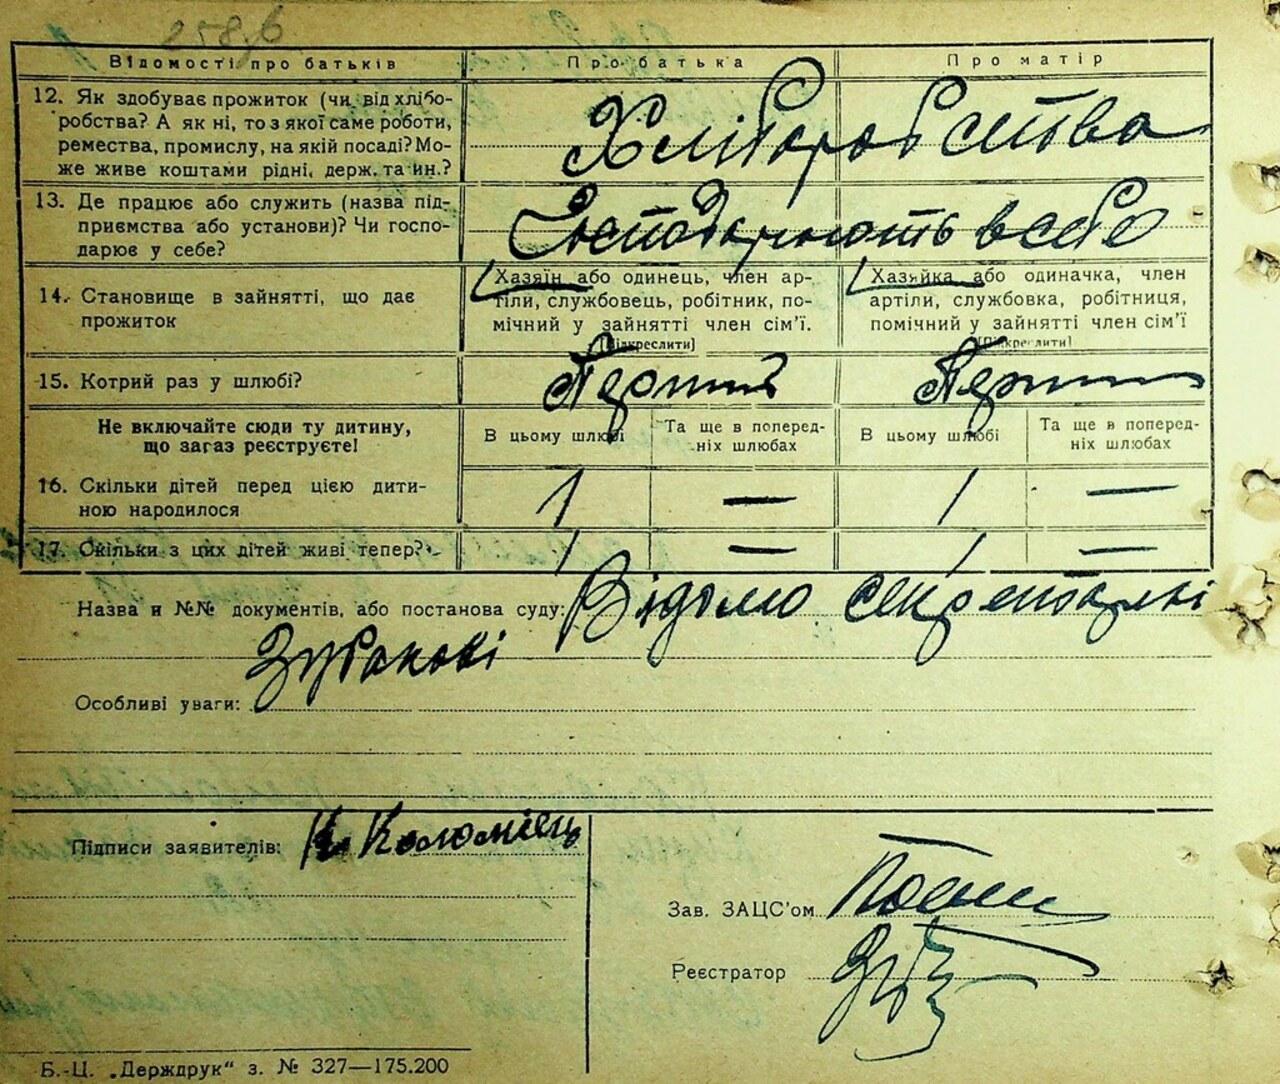 258/6
Відомості про батьків Про батька Про матір
12. Як здобуває прожиток (чи від хлібо-
робства? А як ні, то з якої саме роботи,
ремества, промислу, на якій посаді? Мо-
же живе коштами рідні, держ. та ин.?
Хліборобства
13. Де працює або служить (назва під-
приємства або установи)? Чи госпо-
дарює у себе?
Господарюють в себе
14. Становище в зайнятті, що дає
прожиток
Хазяїн або одинець, член ар-
тіли, службовець, робітник, по-
мічний у зайнятті член сім'ї.
(Підкреслити)
Хазяйка або одиначка, член
артіли, службовка, робітниця,
помічний у зайнятті член сім'ї
(Підкреслити)
15. Котрий раз у шлюбі? Перший Перший
Не включайте сюди ту дитину,
що загаз реєструєте!
В цьому шлюбі
Та ще в поперед-
ніх шлюбах
В цьому шлюбі
Та ще в поперед-
ніх шлюбах
16. Скільки дітей перед цією дити-
ною народилося
1 — 1 —
17. Скільки з цих дітей живі тепер? 1 — 1 —
Назва и №№ документів, або постанова суду: Відомо секретарeві
Зубакові
Особливі уваги:
Підписи заявителів: К. Коломієць
Зав. ЗАЦС'ом
Реєстратор
Б.-Ц. „Держдрук" з. № 327—175.200